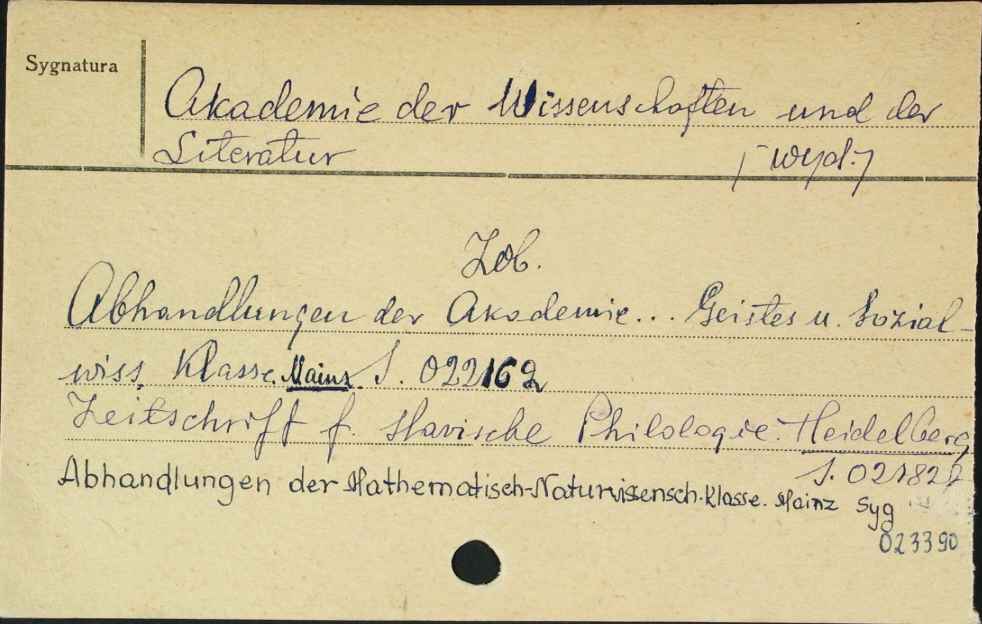 Sygnatura
Akademie der Wissenschaften und der
Literatur /-wyd.-/
Zob.
Abhandlungen der Akademie... Geistes u. Sozial-
wiss. Klasse. Mainz. S. 022162
Zeitschrift f. slavische Philologie. Heidelberg
S. 021827
Abhandlungen der Mathematisch-Naturwissensch. Klasse. Mainz Syg
023390